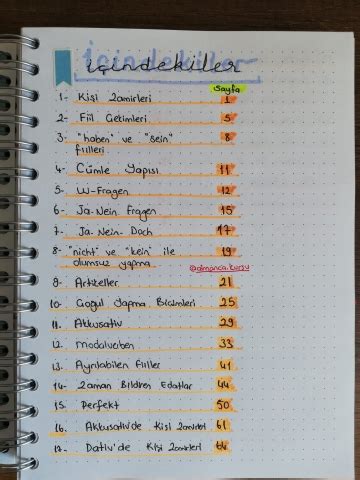 içindekiler
sayfa
1- Kişi Zamirleri 1
2- Fiil Çekimleri 5
3- "haben" ve "sein" 8
fiilleri
4- Cümle Yapısı 11
5- W-Fragen 12
6- Ja-Nein Fragen 15
7- Ja-Nein-Doch 17
8- "nicht" ve "kein" ile 19
olumsuz yapma
@almanca.kursu
9- Artikeller 21
10- Çoğul Yapma Biçimleri 25
11. Akkusativ 29
12. modalverben 33
13. Ayrılabilen Fiiller 41
14- Zaman Bildiren Edatlar 44
15. Perfekt 50
16. Akkusativ'de Kişi Zamirleri 61
17. Dativ'de Kişi Zamirleri 64